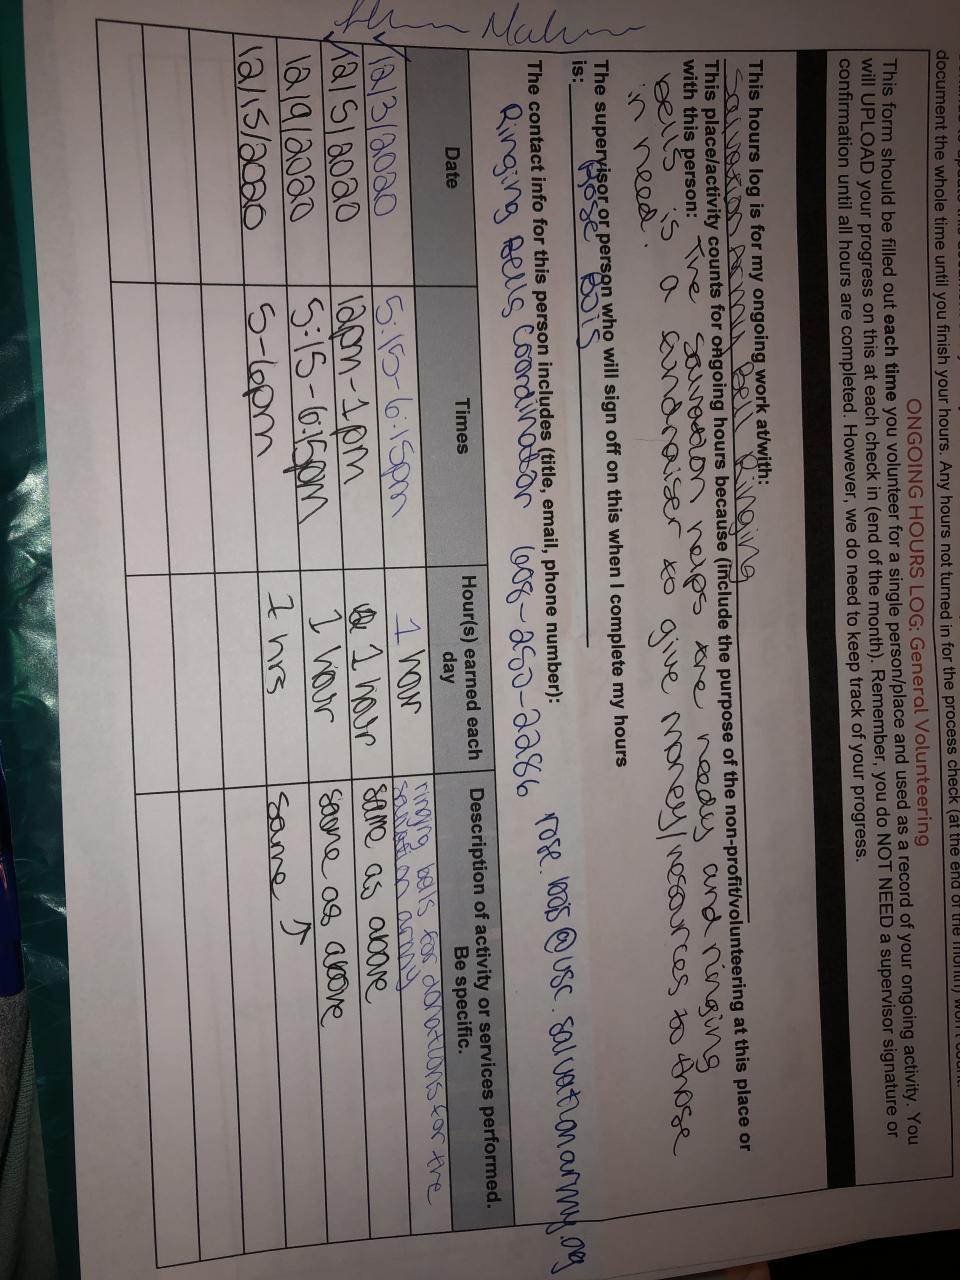 document the whole time until you finish your hours. Any hours not turned in for the process check (at the end of the month) won't count.
ONGOING HOURS LOG: General Volunteering
This form should be filled out each time you volunteer for a single person/place and used as a record of your ongoing activity. You
will UPLOAD your progress on this at each check in (end of the month). Remember, you do NOT NEED a supervisor signature or
confirmation until all hours are completed. However, we do need to keep track of your progress.
This hours log is for my ongoing work at/with:
Salvation Army Bell Ringing
This place/activity counts for ongoing hours because (include the purpose of the non-profit/volunteering at this place or
with this person: The salvation helps the needy and ringing
bells is a fundraiser to give money/resources to those
in need.
The supervisor or person who will sign off on this when I complete my hours
is: Rose
The contact info for this person includes (title, email, phone number):
Ringing Bells Coordinator 608-250-2286 @usc.salvationarmy.org
Date Times Hour(s) earned each day Description of activity or services performed. Be specific.
12/3/2020 5:15-6:15pm 1 hour ringing bells for donations for the salvation army
12/5/2020 12pm-1pm 1 hour same as above
12/9/2020 5:15-6:15pm 1 hour same as above
12/15/2020 5-6pm 1 hrs same ↑